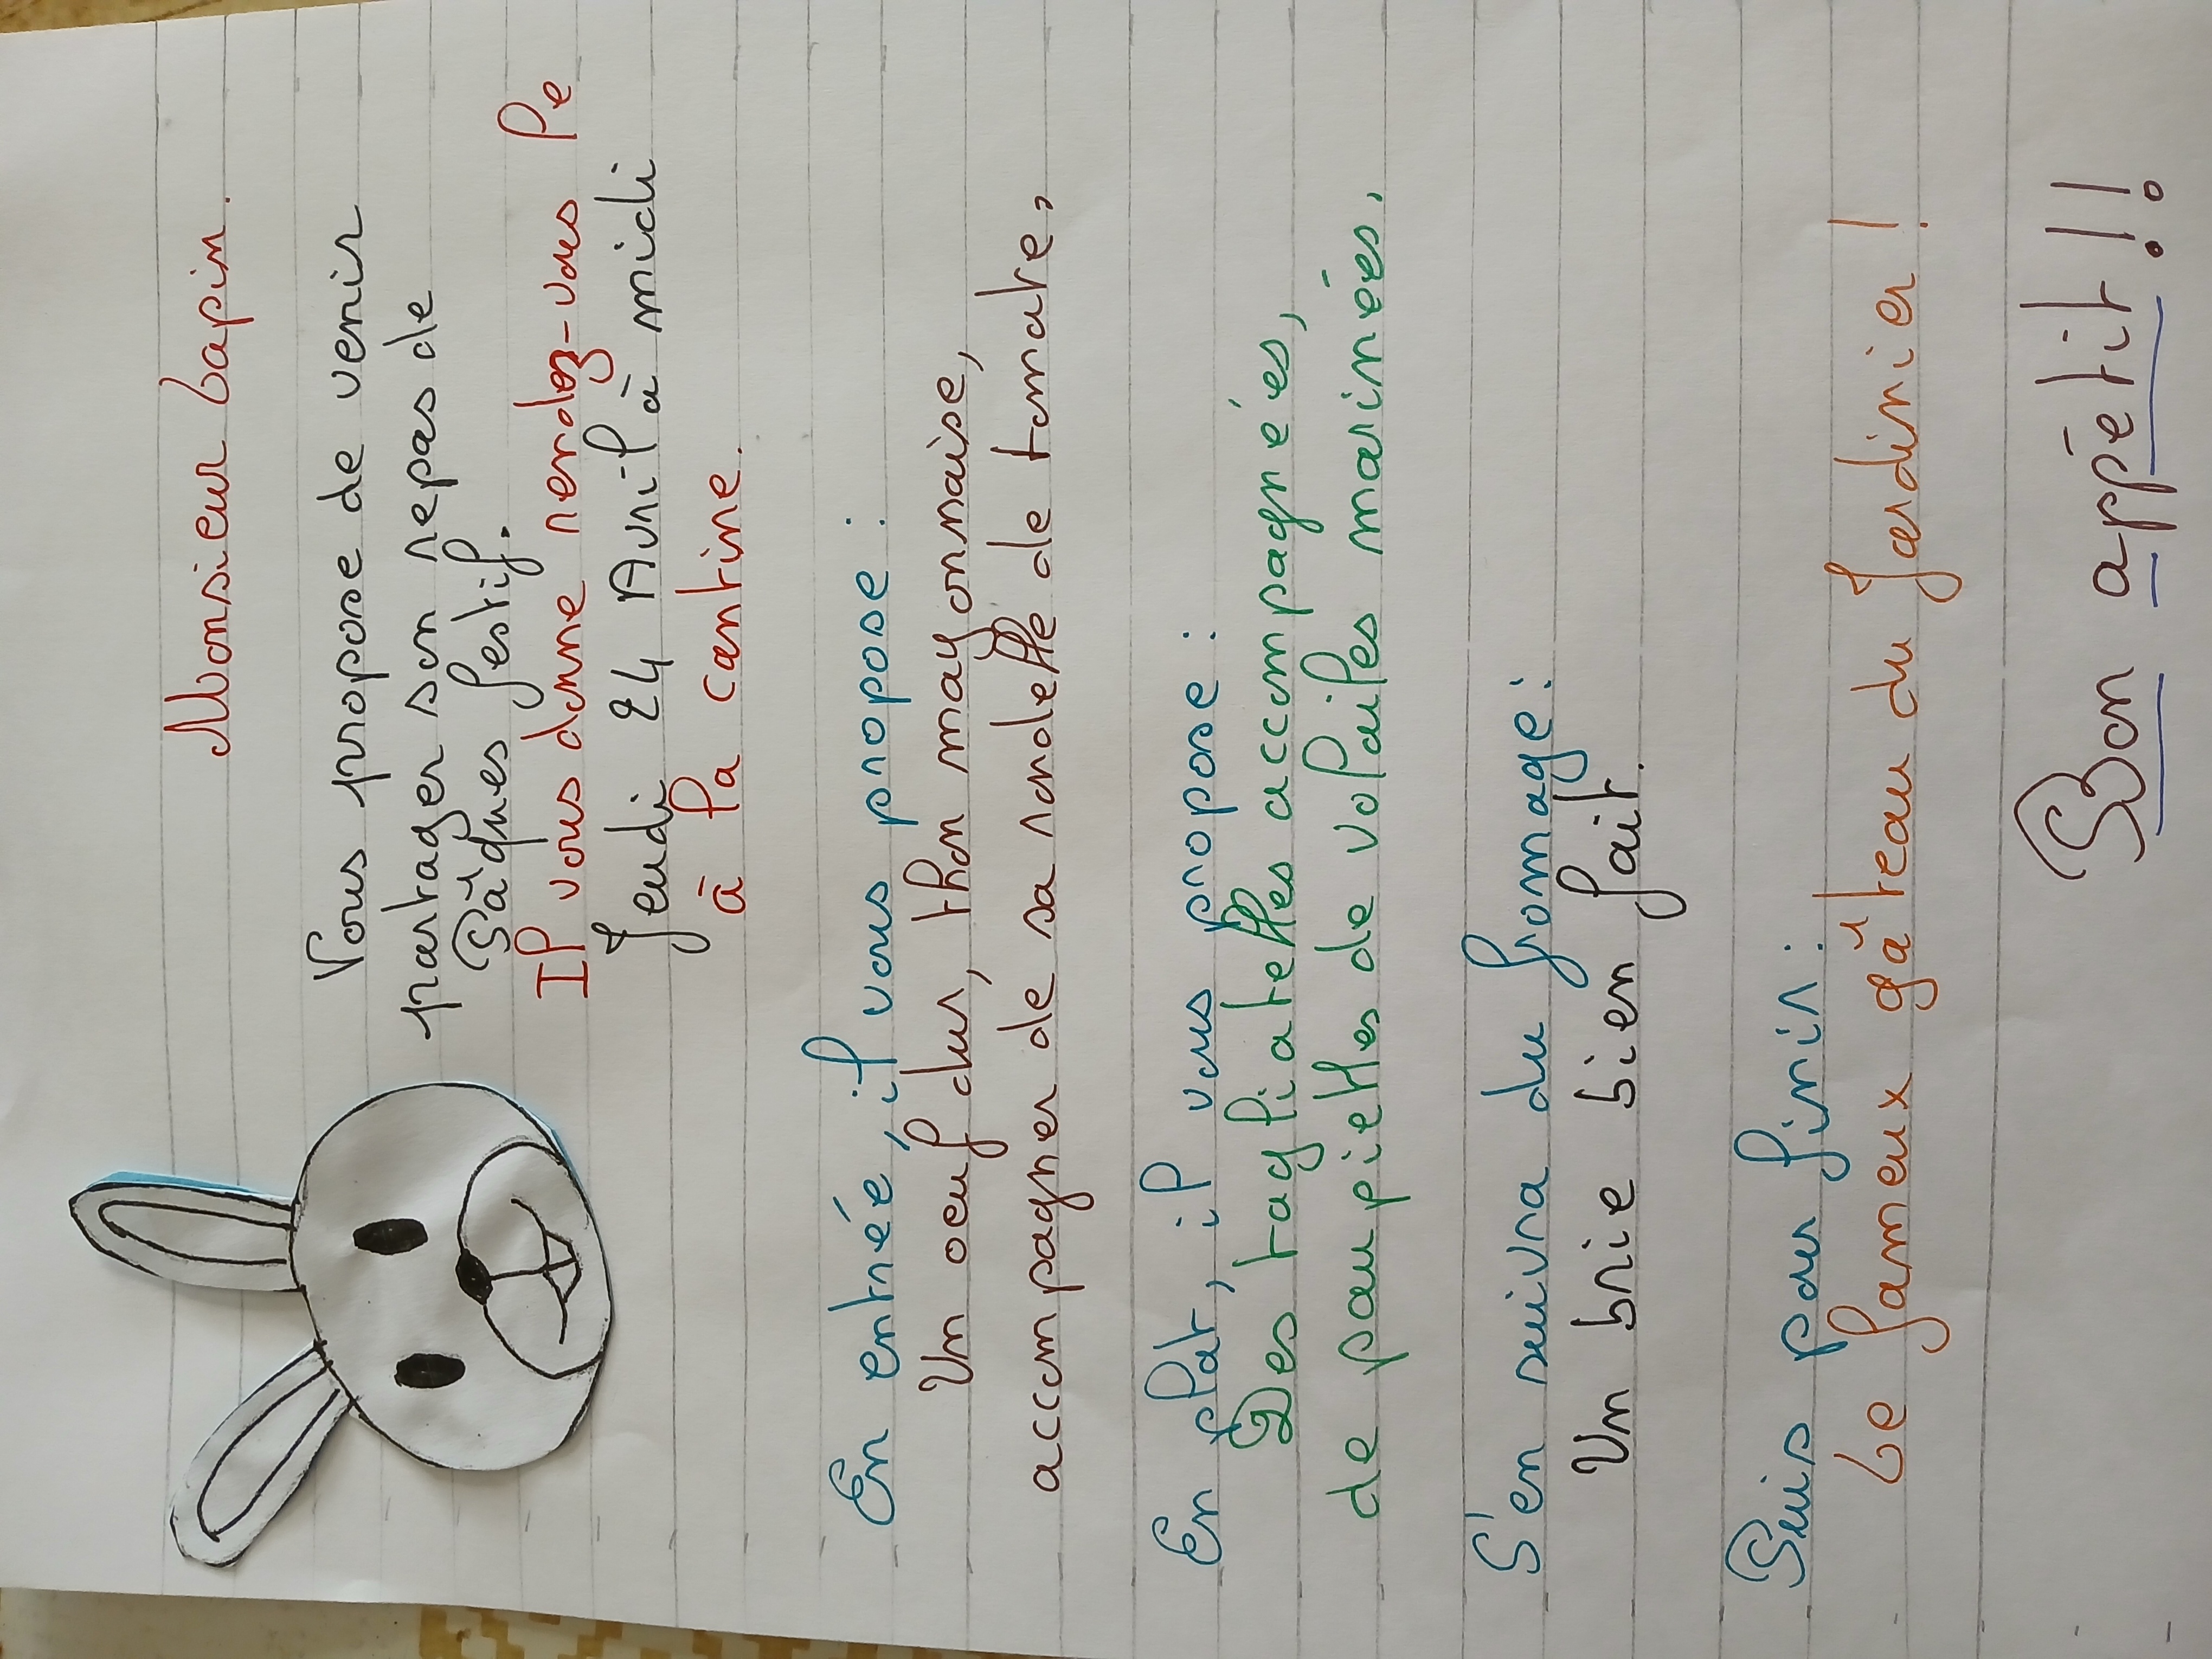 Monsieur Lapin.
Vous propose de venir
partager son repas de
Pâques festif.
Il vous donne rendez-vous le
Jeudi 24 Avril à midi
à la cantine.
En entrée, il vous propose :
Un oeuf dur, thon mayonnaise,
accompagner de sa rondelle de tomate,
En plat, il vous propose :
Des tagliatelles accompagnées,
de paupiettes de volailes marinées,
S'en suivra du fromage :
Un brie bien fait.
Puis pour finir :
Le fameux gâteau du Jardinier !
Bon appétit !!!